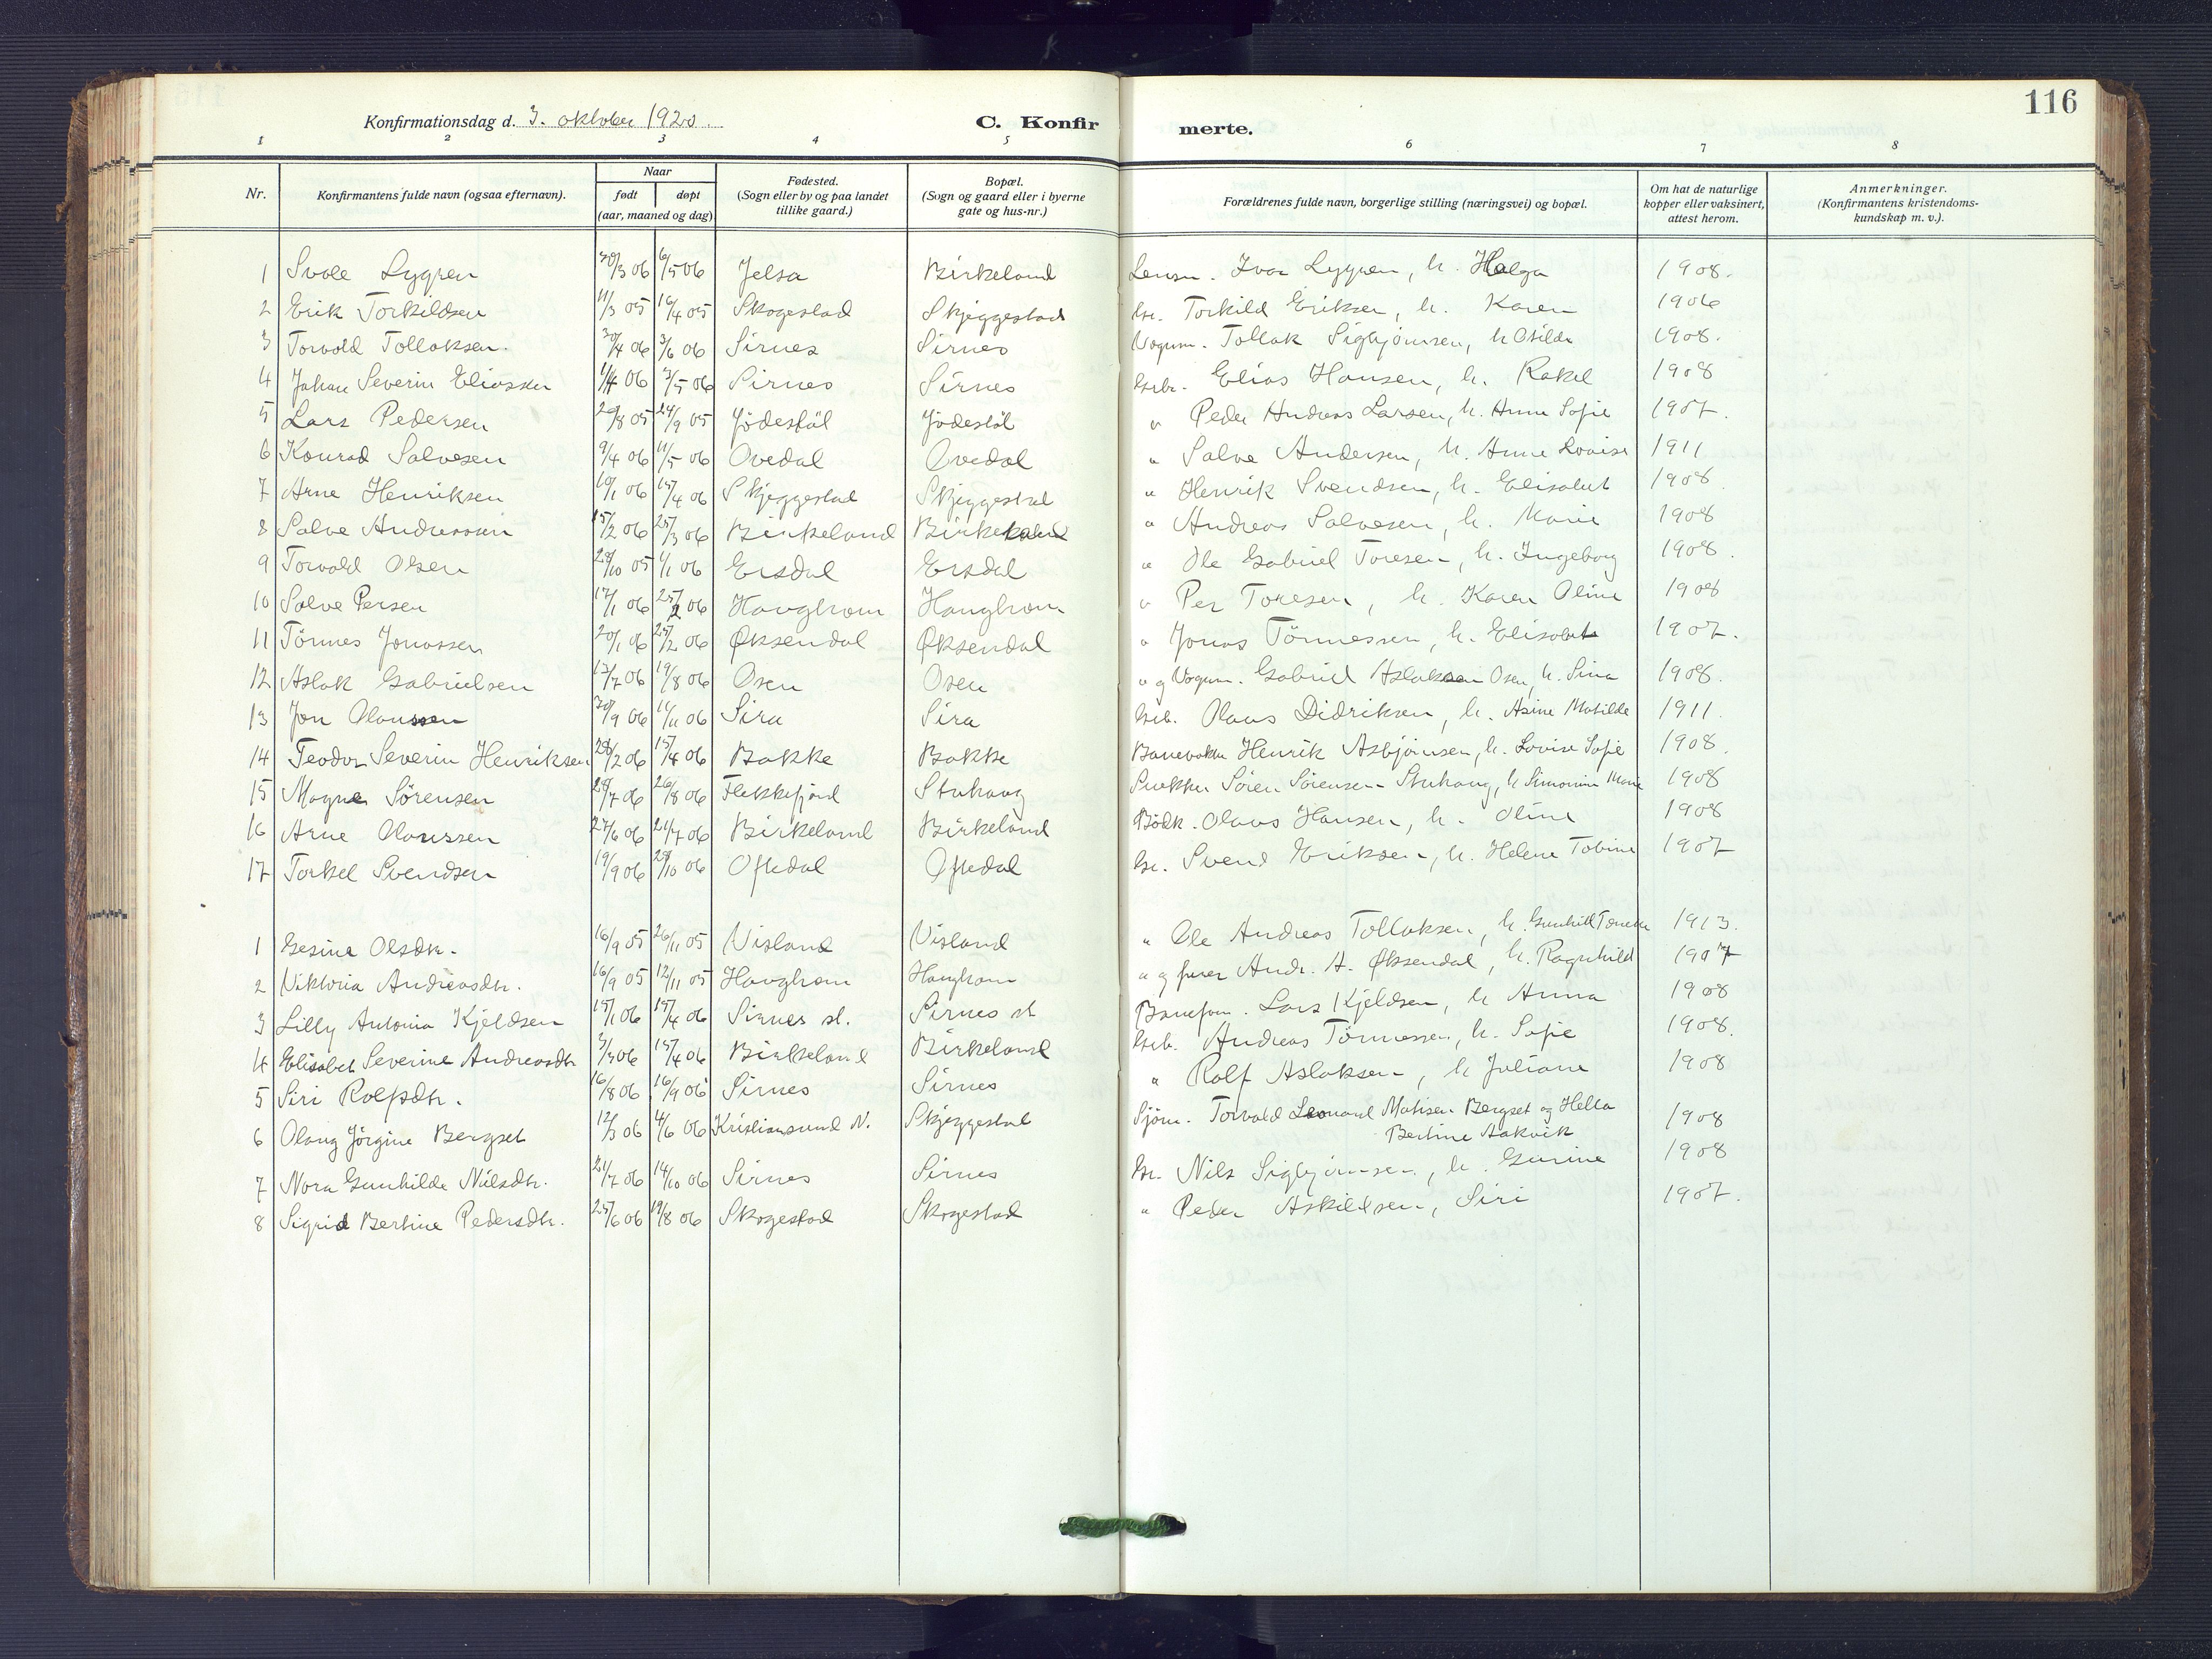 Konfirmationsdag d. 3. oktober 1920. C. Konfirmerte. 116
1 2 3 4 5 6 7 8
Nr. Konfirmantens fulde navn (ogsaa efternavn). Naar født døpt (aar, maaned og dag) Fødested. (Sogn eller by og paa landet tillike gaard.) Bopæl. (Sogn og gaard eller i byerne gate og hus-nr.) Forældrenes fulde navn, borgerlige stilling (næringsvei) og bopæl. Om hat de naturlige kopper eller vaksinert, attest herom. Anmerkninger. (Konfirmantens kristendoms-kundskap m. v.).
1 Svale Lygren 30/3 06 6/5 06 Jelsa Birkeland Lensm. Ivar Lygren, h. Helga 1908.
2 Erik Torkildsen 11/3 05 16/4 05 Skogestad Skjeggestad br. Torkild Eriksen, h. Karen 1906
3 Torvald Tollaksen. 30/4 06 3/6 06 Sirnes Sirnes Vognm. Tollak Sigbjørnsen, h Otilde 1908.
4 Johan Severin Eliassen 1/4 06 3/5 06 Sirnes Sirnes Grbr. Elias Hansen, h. Rakel 1908
5 Lars Pedersen 20/8 05 24/9 05 Jødestøl Jødestøl " Peder Andreas Larsen, h. Anne Sofie 1907.
6 Konrad Salvesen 9/4 06 11/5 06 Ovedal Ovedal " Salve Andersen, h. Anne Lovise 1911
7 Arne Henriksen 10/1 06 15/4 06 Skjeggestad Skjeggestad " Henrik Svendsen, h. Elisabet 1908
8 Salve Andreassen 15/2 06 25/3 06 Birkeland Birkeland " Andreas Salvesen, h. Marie 1908
9 Torvald Olsen 28/10 05 1/1 06 Ersdal Ersdal " Ole Gabriel Toresen, h. Ingeborg 1908.
10 Salve Persen 17/1 06 25/2 06 Haughom Haughom " Per Toresen, h. Karen Oline 1908
11 Tönnes Jonassen 20/1 06 25/2 06 Øksendal Øksendal " Jonas Tönnessen, h. Elisabet 1907.
12 Aslak Gabrielsen 13/7 06 19/8 06 Osen Osen " og Vognm. Gabriel Aslaksen Osen, h. Sina 1908.
13 Jon Olaussen 30/9 06 11/11 06 Sira Sira Grb. Olaus Didriksen, h. Asine Matilde 1911.
14 Teodor Severin Henriksen 28/2 06 15/4 06 Bakke Bakke Banevokter Henrik Asbjørnsen, h. Lovise Sofie 1908.
15 Magne Sörensen 28/7 06 26/8 06 Flekkefjord Stuhaug Snekker Søren Sørensen Stuhaug, h Simonine Marie 1908
16 Arne Olaussen 27/6 06 21/7 06 Birkeland Birkeland Bødk. Olaus Hansen, h. Oline 1908
17 Torkel Svendsen 19/9 06 28/10 06 Oftedal Oftedal br. Svend Eriksen, h. Helene Tobine 1907
1 Gesine Olsdtr. 16/9 05 26/11 05 Visland Visland " Ole Andreas Tollaksen, h. Gunhild 1913.
2 Viktoria Andreasdtr. 16/9 05 12/11 05 Haughom Haughom " og Andr. A. Øksendal, h. Ragnhild 1907
3 Lilly Antonia Kjeldsen 15/1 06 15/4 06 Sirnes st. Sirnes st Baneform. Lars Kjeldsen, h Anna 1908
4 Elisabet Severine Andreasdtr 3/3 06 15/4 06 Birkeland Birkeland Grb. Andreas Tönnessen, h. Sofie 1908.
5 Siri Rolfsdtr. 16/8 06 16/9 06 Sirnes Sirnes " Rolf Aslaksen, h Juliane 1908
6 Olaug Jörgine Bergset 12/3 06 4/6 06 Kristiansund N. Skjeggestad Sjøm. Torvald Leonard Matisen Bergset og Hella
Bertine Aakvik 1908
7 Nora Gunhilde Nilsdtr. 21/7 06 14/10 06 Sirnes Sirnes br. Nils Sigbjørnsen, h. Gurine 1908
8 Sigrid Bertine Pedersdtr. 25/6 06 19/8 06 Skogestad Skogestad " Peder Askildsen, Siri 1907.